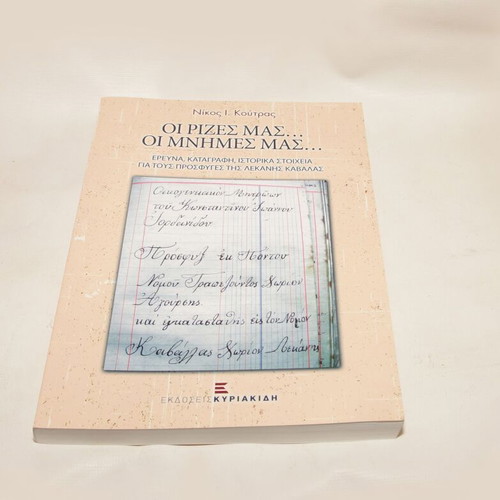 Νίκος Ι. Κούτρας
ΟΙ ΡΙΖΕΣ ΜΑΣ...
ΟΙ ΜΝΗΜΕΣ ΜΑΣ...
ΕΡΕΥΝΑ, ΚΑΤΑΓΡΑΦΗ, ΙΣΤΟΡΙΚΑ ΣΤΟΙΧΕΙΑ
ΓΙΑ ΤΟΥΣ ΠΡΟΣΦΥΓΕΣ ΤΗΣ ΛΕΚΑΝΗΣ ΚΑΒΑΛΑΣ
Οικογενειακόν Μητρώον
τοῦ Κωνσταντίνου Ἰωάννου
Ἰορδανίδου
Πρόσφυξ ἐκ Πόντου
Νομοῦ Τραπεζοῦντος Χωρίον
καὶ ἐγκατασταθῆς εἰς τὸν Νομὸν
Καβάλλας Χωρίον Λεκάνης
ΕΚΔΟΣΕΙΣ ΚΥΡΙΑΚΙΔΗ